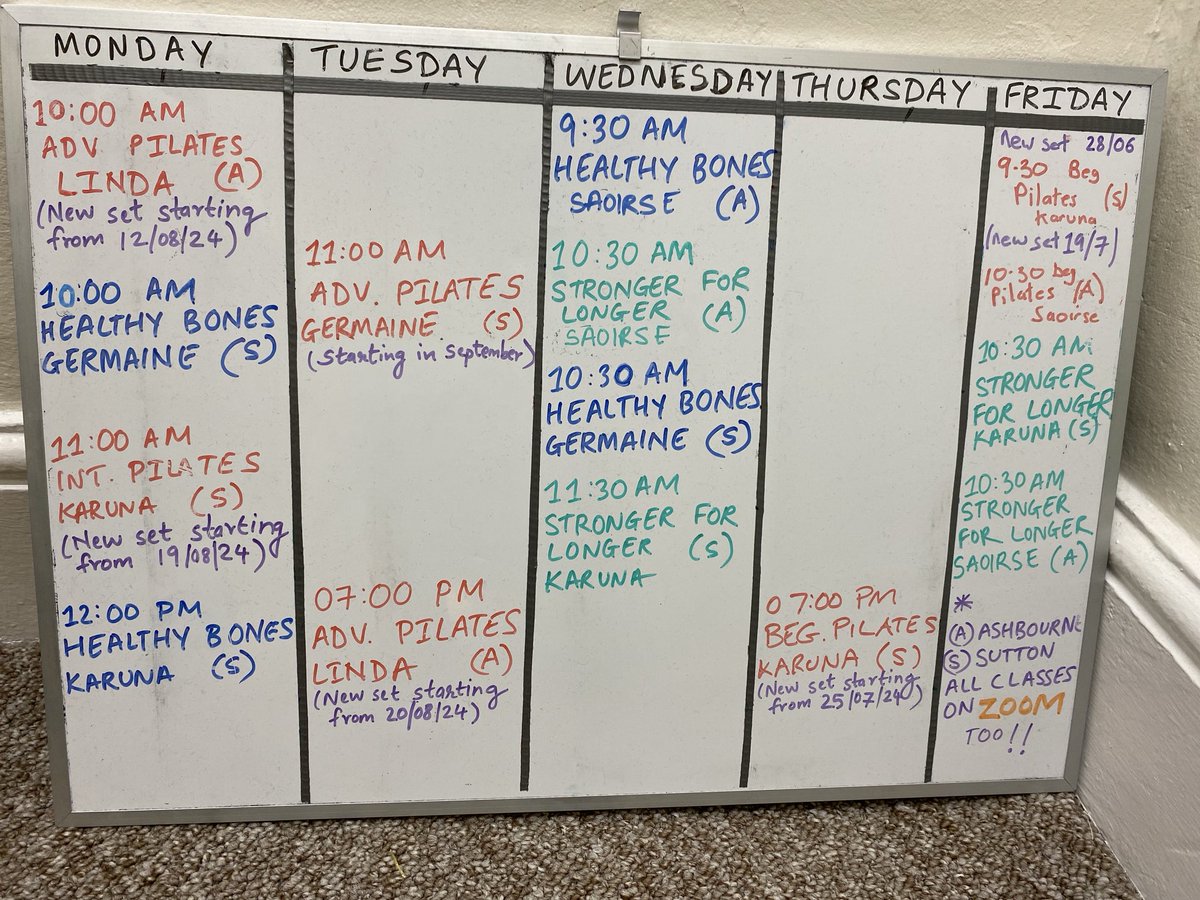 MONDAY
10:00 AM
ADV. PILATES
LINDA (A)
(New set starting
from 12/08/24)
10:00 AM
HEALTHY BONES
GERMAINE (S)
11:00 AM
INT. PILATES
KARUNA (S)
(New set starting
from 19/08/24)
12:00 PM
HEALTHY BONES
KARUNA (S)
TUESDAY
11:00 AM
ADV. PILATES
GERMAINE (S)
(Starting in September)
07:00 PM
ADV. PILATES
LINDA (A)
(New set starting
from 20/08/24)
WEDNESDAY
9:30 AM
HEALTHY BONES
SAOIRSE (A)
10:30 AM
STRONGER FOR
LONGER (A)
SAOIRSE
10:30 AM
HEALTHY BONES
GERMAINE (S)
11:30 AM
STRONGER FOR
LONGER (S)
KARUNA
THURSDAY
07:00 PM
BEG. PILATES
KARUNA (S)
(New set starting
from 25/07/24)
FRIDAY
New set 28/06
9.30 Beg
Pilates (S)
Karuna
(new set 19/7)
10.30 beg
Pilates (A)
Saoirse
10:30 AM
STRONGER
FOR LONGER
KARUNA (S)
10:30 AM
STRONGER
FOR LONGER
SAOIRSE (A)
*
(A) ASHBOURNE
(S) SUTTON
ALL CLASSES
ON ZOOM
TOO!!